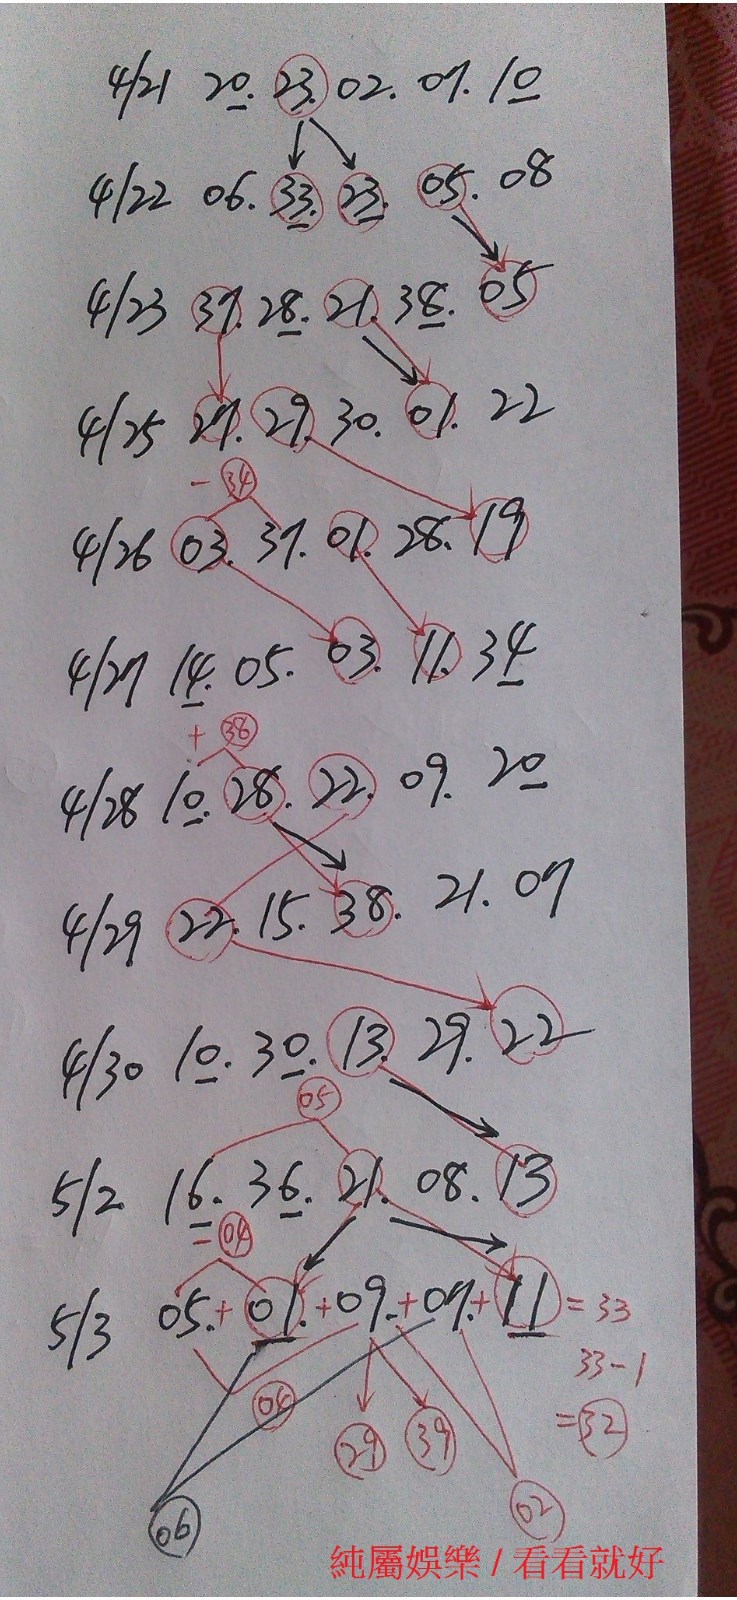 4/21 20. 23. 02. 07. 10
4/22 06. 33. 23. 05. 08
4/23 37. 28. 21. 38. 05
4/25 27. 29. 30. 01. 22
- 34
4/26 03. 37. 01. 28. 19
4/27 14. 05. 03. 11. 34
+ 38
4/28 10. 28. 22. 09. 20
4/29 22. 15. 38. 21. 07
4/30 10. 30. 13. 29. 22
05
5/2 16. 36. 21. 08. 13
- 04
5/3 05. + 01. + 09. + 07. + 11 = 33
33-1
04
= 32
29 39
06
02
純屬娛樂 / 看看就好